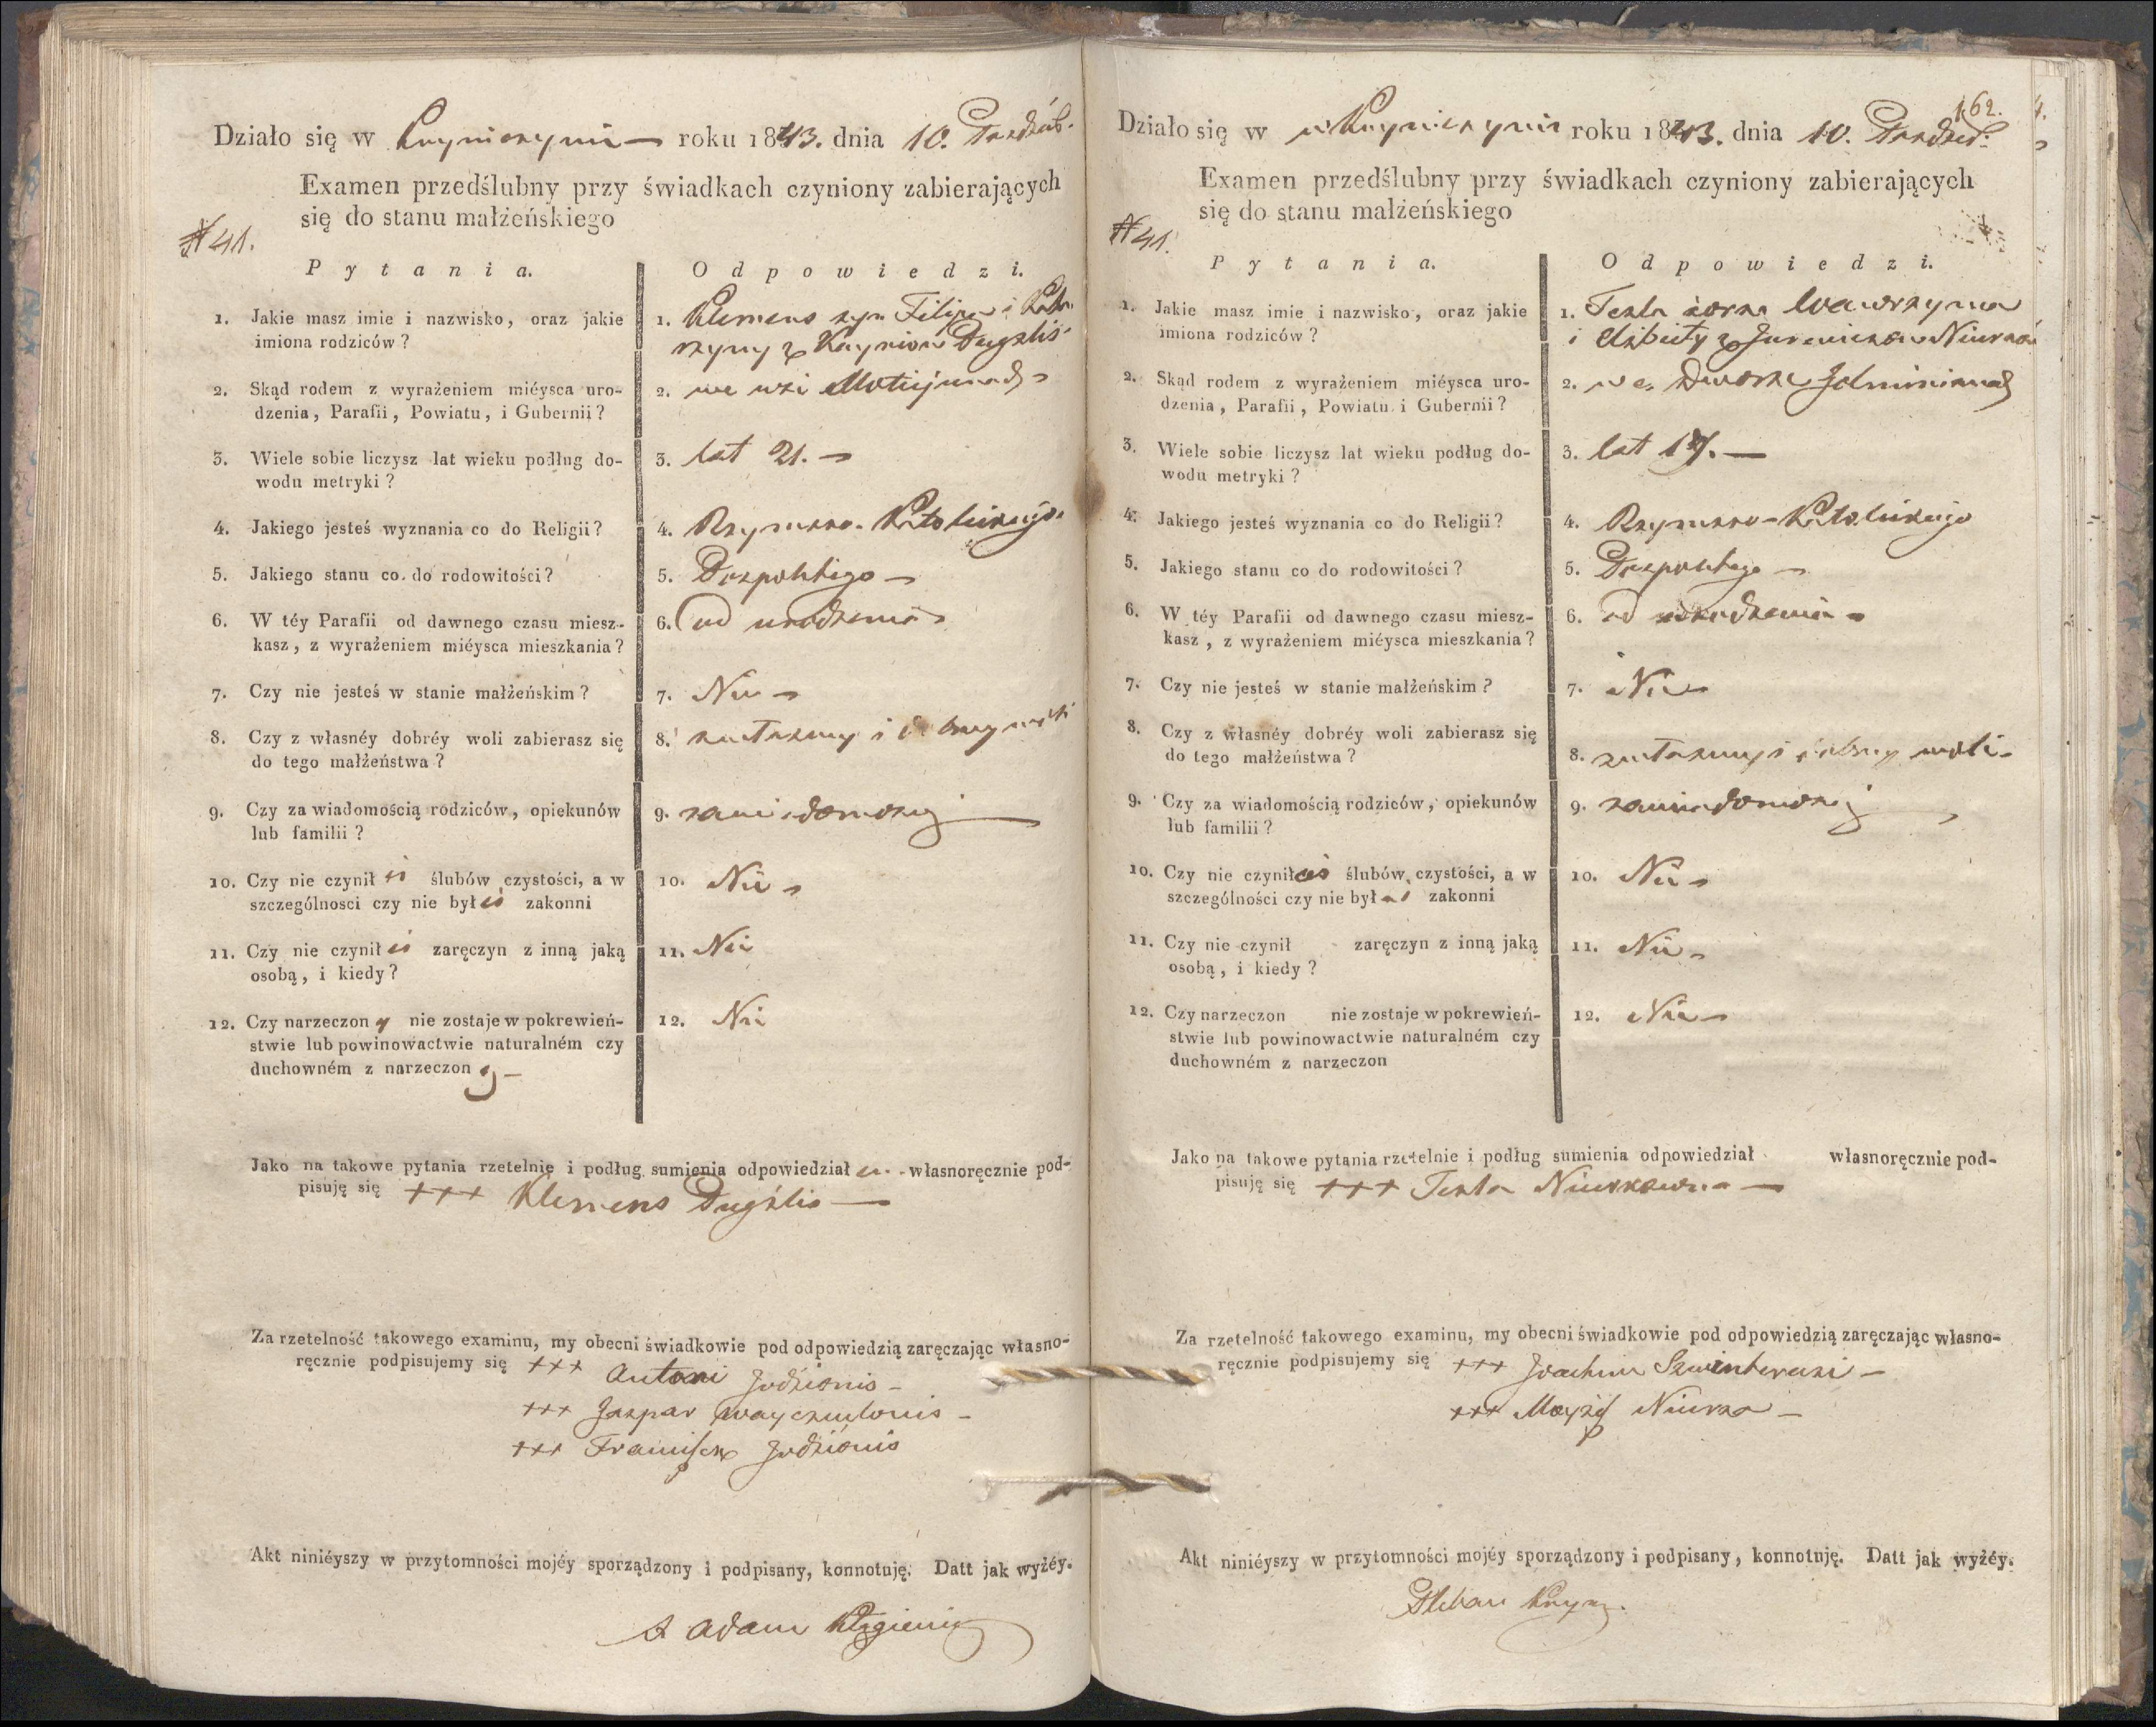 Działo się w Kryniczynie roku 1843. dnia 10. Pazdzieb.
Examen przedślubny przy świadkach czyniony zabierających
się do stanu małżeńskiego
N 41.
Pytania. Odpowiedzi.
1. Jakie masz imie i nazwisko, oraz jakie imiona rodziców?
1. Klemens syn Filipa i
2. Skąd rodem z wyrażeniem miéysca uro-
dzenia, Parafii, Powiatu, i Gubernii?
2. we wsi
3. Wiele sobie liczysz lat wieku podług do-
wodu metryki?
3. lat 21.
4. Jakiego jesteś wyznania co do Religii?
4. Rzymsko-Katolickiego
5. Jakiego stanu co do rodowitości?
5. Pospolitego
6. W téy Parafii od dawnego czasu miesz-
kasz, z wyrażeniem miéysca mieszkania?
6. od urodzenia
7. Czy nie jesteś w stanie małżeńskim?
7. Nie
8. Czy z własnéy dobréy woli zabierasz się
do tego małżeństwa?
8. i dobrey woli
9. Czy za wiadomością rodziców, opiekunów
lub familii?
9. za wiadomością
10. Czy nie czynił eś ślubów czystości, a w
szczególnosci czy nie był eś zakonni
10. Nie
11. Czy nie czynił eś zaręczyn z inną jaką
osobą, i kiedy?
11. Nie
12. Czy narzeczon y nie zostaje w pokrewień-
stwie lub powinowactwie naturalném czy
duchowném z narzeczon ą
12. Nie
Jako na takowe pytania rzetelnie i podług sumienia odpowiedział em własnoręcznie pod-
pisuję się +++ Klemens Dugżlis
Za rzetelność takowego examinu, my obecni świadkowie pod odpowiedzią zaręczając własno-
ręcznie podpisujemy się +++ Antoni Jodzionis
+++ Jozpar
+++ Franciszek Jodzionis
Akt niniéyszy w przytomności mojéy sporządzony i podpisany, konnotuję. Datt jak wyżéy.
X Adam
162.
Działo się w w Kryniczynie roku 1843. dnia 10. Pazdzieb.
Examen przedślubny przy świadkach czyniony zabierających
się do stanu małżeńskiego
N 41.
Pytania. Odpowiedzi.
1. Jakie masz imie i nazwisko, oraz jakie
imiona rodziców?
1. Tekla córka Wawrzyna
i Elżbiety z
2. Skąd rodem z wyrażeniem miéysca uro-
dzenia, Parafii, Powiatu i Gubernii?
2. we Dworze
3. Wiele sobie liczysz lat wieku podług do-
wodu metryki?
3. lat
4. Jakiego jesteś wyznania co do Religii?
4. Rzymsko-Katolickiego
5. Jakiego stanu co do rodowitości?
5. Pospolitego
6. W téy Parafii od dawnego czasu miesz-
kasz, z wyrażeniem miéysca mieszkania?
6. od urodzenia
7. Czy nie jesteś w stanie małżeńskim?
7. Nie
8. Czy z własnéy dobréy woli zabierasz się
do tego małżeństwa?
8. i dobrey woli
9. Czy za wiadomością rodziców, opiekunów
lub familii?
9. za wiadomością
10. Czy nie czynił aś ślubów czystości, a w
szczególności czy nie był aś zakonni
10. Nie
11. Czy nie czynił zaręczyn z inną jaką
osobą, i kiedy?
11. Nie
12. Czy narzeczon nie zostaje w pokrewień-
stwie lub powinowactwie naturalném czy
duchowném z narzeczon
12. Nie
Jako na takowe pytania rzetelnie i podług sumienia odpowiedział własnoręcznie pod-
pisuję się +++ Tekla Niurkowna
Za rzetelność takowego examinu, my obecni świadkowie pod odpowiedzią zaręczając własno-
ręcznie podpisujemy się +++ Joachim
+++ Niurka
Akt niniéyszy w przytomności mojéy sporządzony i podpisany, konnotuję. Datt jak wyżéy.
Pleban